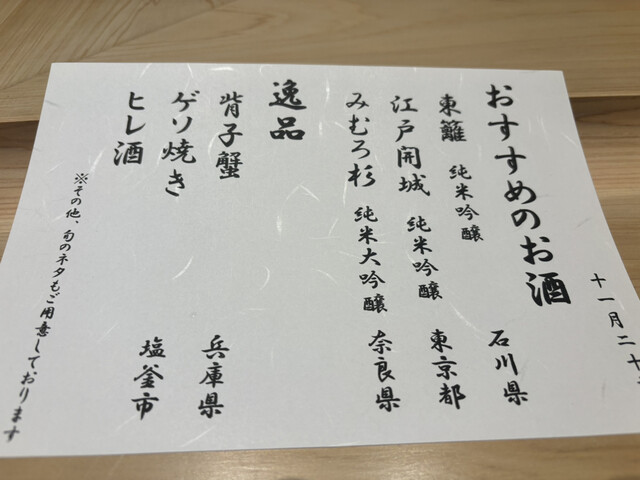 十一月二十
おすすめのお酒
東籬 純米吟醸 石川県
江戸開城 純米吟醸 東京都
みむろ杉 純米大吟醸 奈良県
逸品
背子蟹 兵庫県
ゲソ焼き 塩釜市
ヒレ酒
※その他、旬のネタもご用意しております